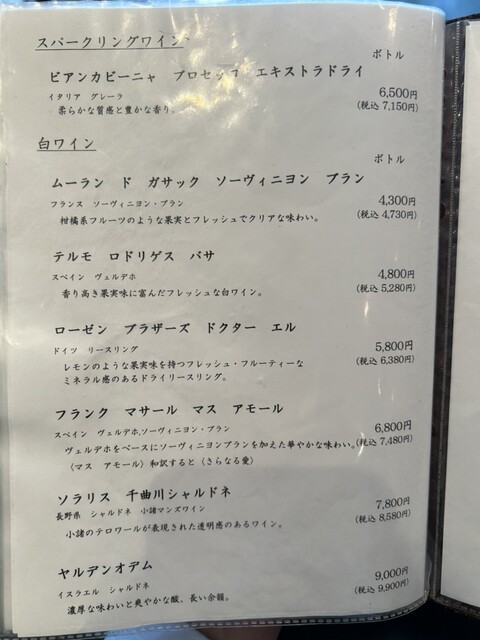 スパークリングワイン
ボトル
ビアンカビーニャ プロセッコ エキストラドライ
6,500円
イタリア グレーラ
(税込 7,150円)
柔らかな質感と豊かな香り。
白ワイン
ボトル
ムーラン ド ガサック ソーヴィニヨン ブラン
4,300円
フランス ソーヴィニヨン・ブラン
(税込 4,730円)
柑橘系フルーツのような果実とフレッシュでクリアな味わい。
テルモ ロドリゲス バサ
4,800円
スペイン ヴェルデホ
(税込 5,280円)
香り高き果実味に富んだフレッシュな白ワイン。
ローゼン ブラザーズ ドクター エル
5,800円
ドイツ リースリング
(税込 6,380円)
レモンのような果実味を持つフレッシュ・フルーティーな
ミネラル感のあるドライリースリング。
フランク マサール マス アモール
6,800円
スペイン ヴェルデホ,ソーヴィニヨン・ブラン
(税込 7,480円)
ヴェルデホをベースにソーヴィニヨンブランを加えた華やかな味わい。
〈マス アモール〉和訳すると〈さらなる愛〉
ソラリス 千曲川シャルドネ
7,800円
長野県 シャルドネ 小諸マンズワイン
(税込 8,580円)
小諸のテロワールが表現された透明感のあるワイン。
ヤルデンオデム
9,000円
イスラエル シャルドネ
(税込 9,900円)
濃厚な味わいと爽やかな酸、長い余韻。